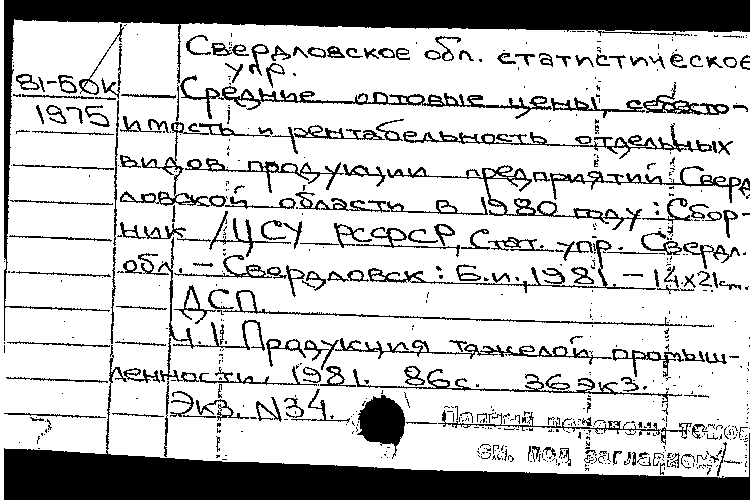 Свердловское обл. статистическое
упр.
81-50к Средние оптовые цены, себесто-
1975 имость и рентабельность отдельных
видов продукции предприятий Сверд
ловской области в 1980 году: Сбор-
ник /ЦСУ РСФСР, Стат. упр. Свердл.
обл. – Свердловск: Б.и., 1981. – 14х21см.
ДСП.
Ч.1. Продукция тяжелой промыш-
ленности. 1981. 86с. 36экз.
Экз. N34.
Полный перечень томов
см. под заглавном